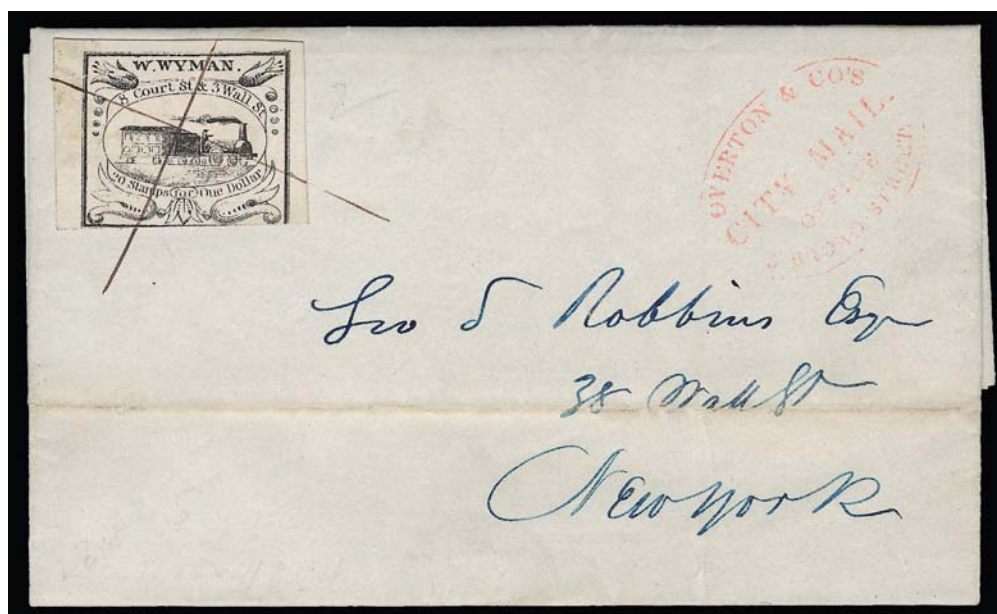 W. WYMAN.
8 Court St & 3 Wall St
20 Stamps for One Dollar
OVERTON & CO'S
CITY MAIL.
OFFICE
STREET.
Geo S Robbins Esqr
38 Wall St
New York